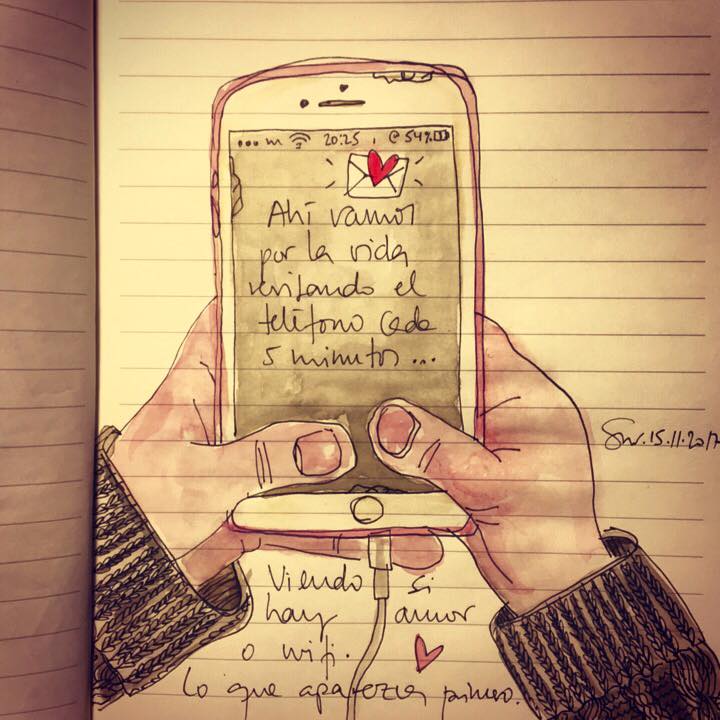 20:25 @ 54%
Ahí vamos
por la vida
revisando el
teléfono cada
5 minutos...
15.11.2017
Viendo si
hay amor
o wifi.
Lo que aparezca primero.